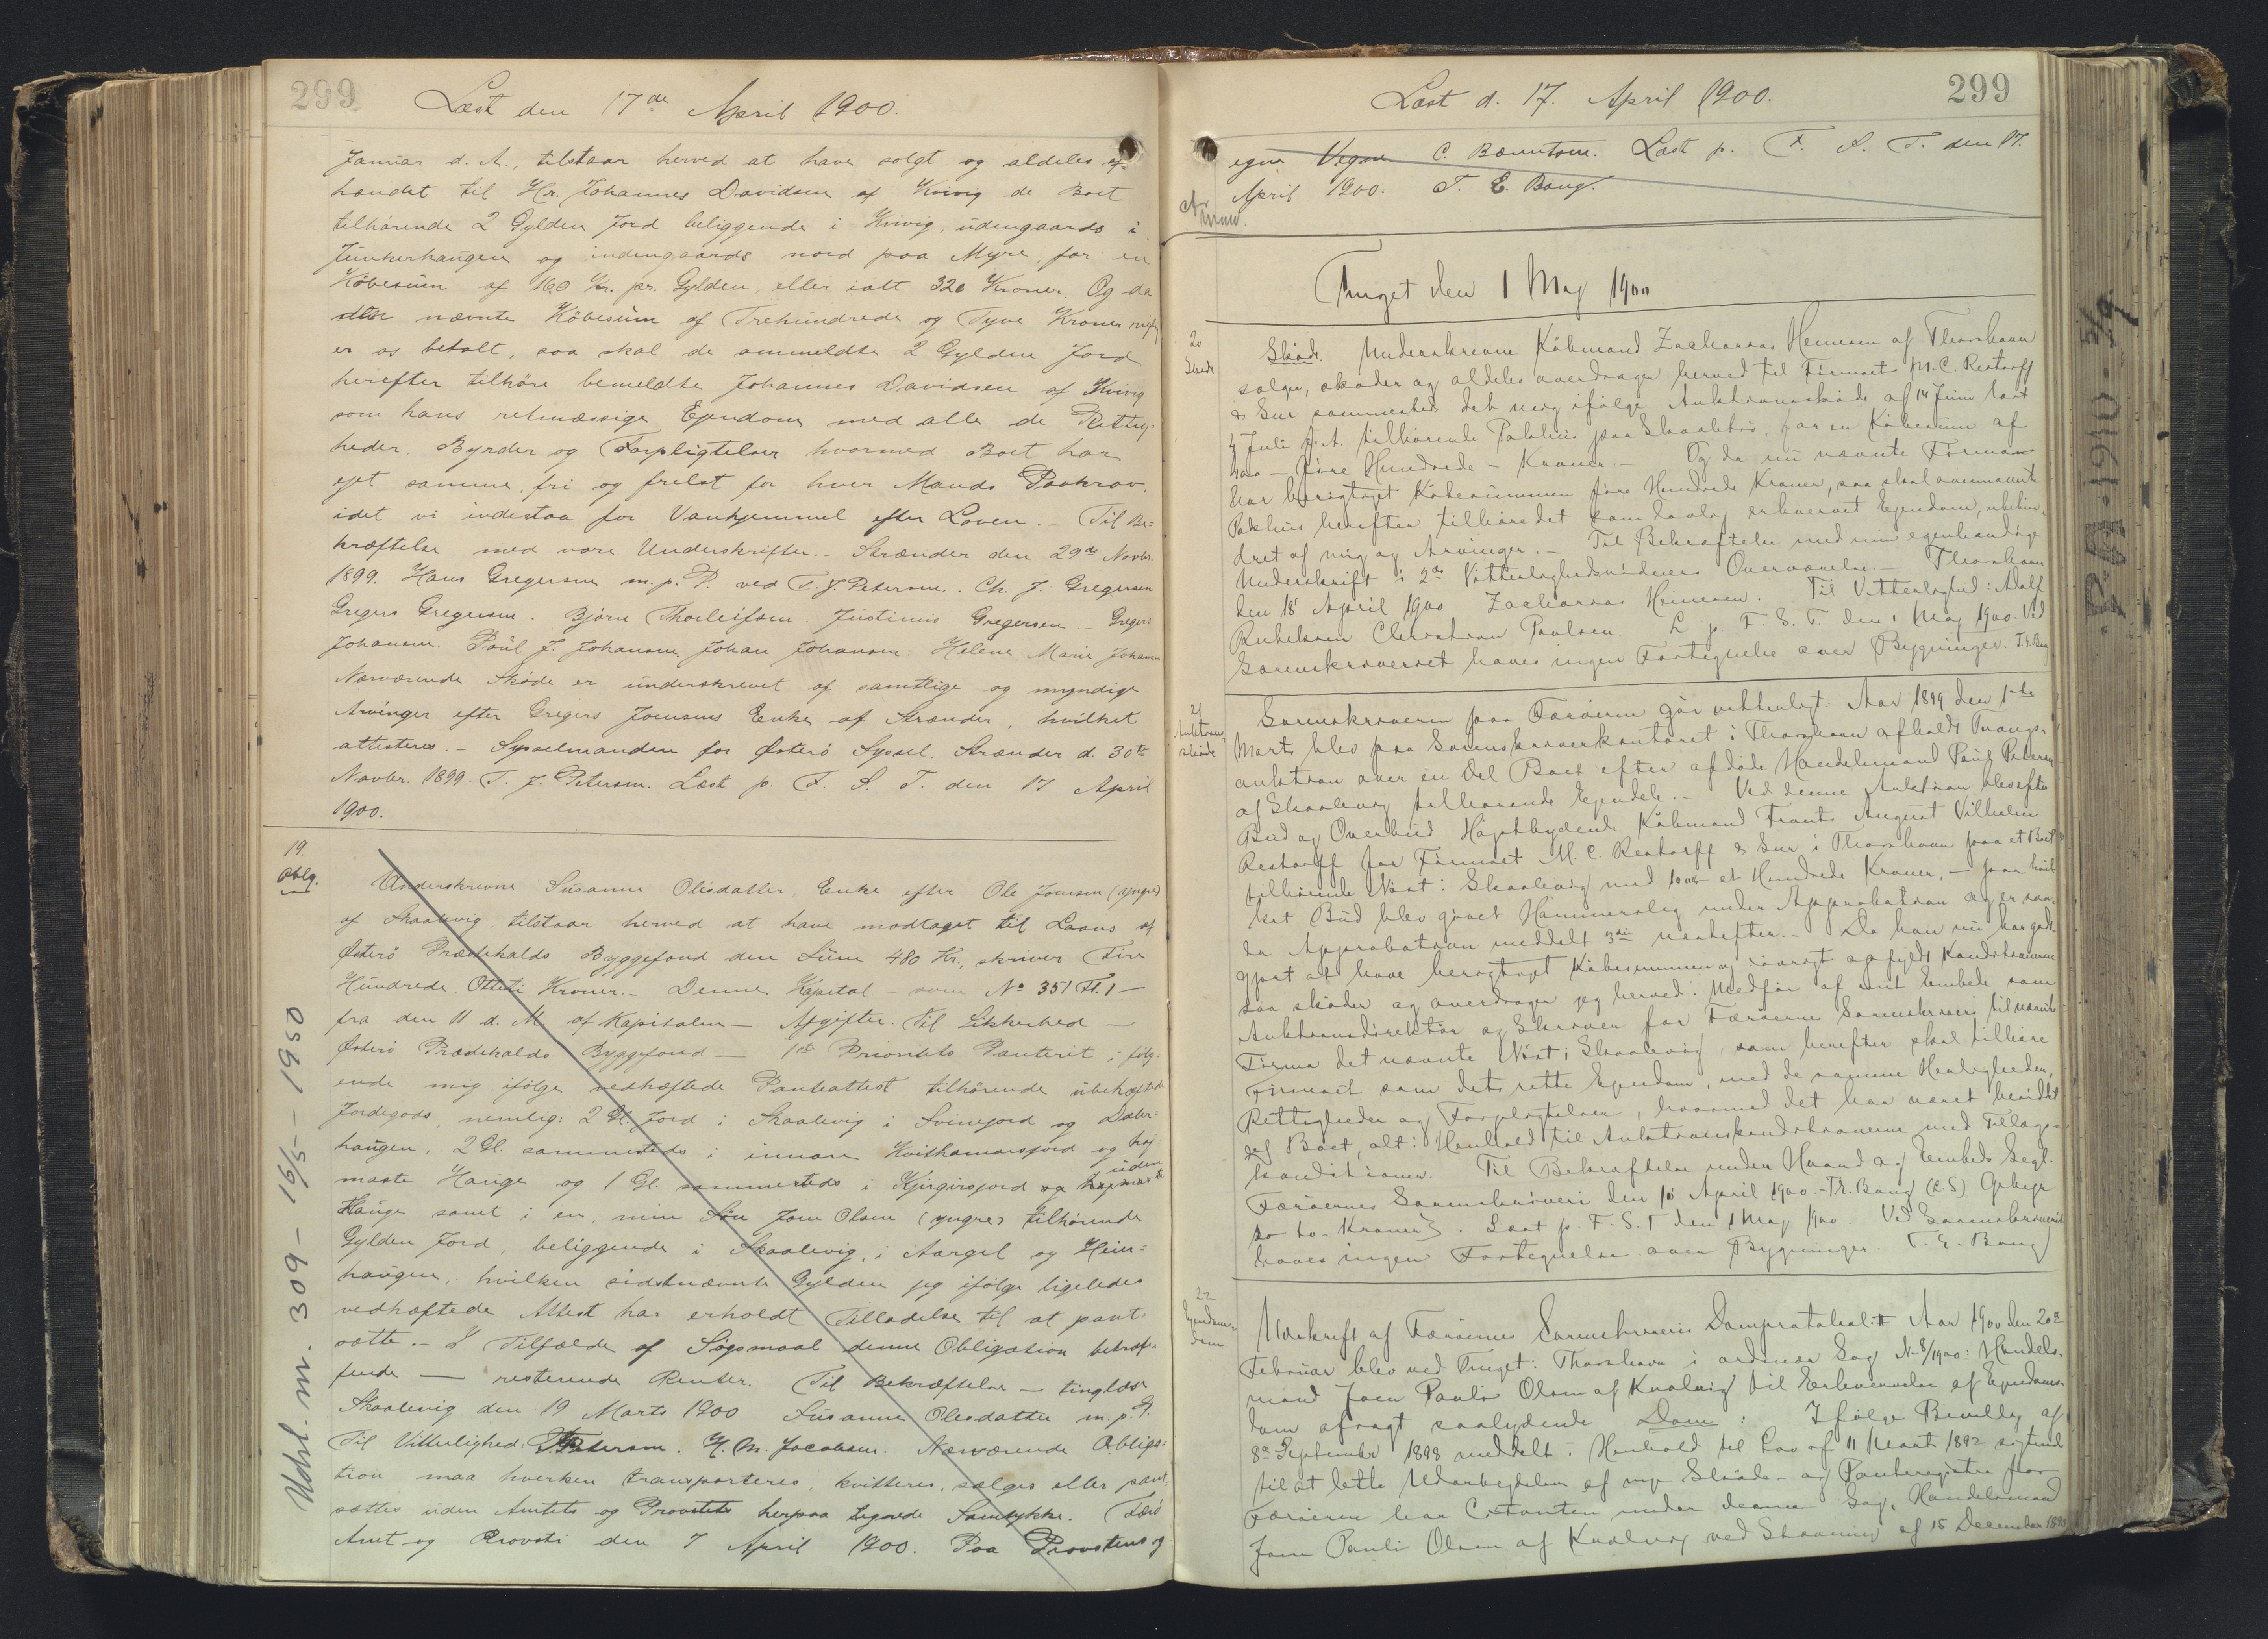 299
Læst den 17de April 1900.
Januar d. A., tilstaar herved at have solgt og aldeles af-
hændet til Hr. Johannes Davidsen af Kvivig de Boet
tilhørende 2 Gylden Jord beliggende i Kvivig, udengaards i
Junkerhaugen og indengaards nord paa Myre, for en
Købesum af 160 Kr. pr. Gylden, eller ialt 320 Kroner. Og da
den nævnte Købesum af Trehundrede og Tyve Kroner
er os betalt, saa skal de ommeldte 2 Gylden Jord
herefter tilhøre bemeldte Johannes Davidsen af Kvivig
som hans retmæssige Ejendom med alle de Rettig-
heder, Byrder og Forpligtelser hvormed Boet har
ejet samme, fri og frelst for hver Mands Paakrav,
idet vi indestaa for Vanhjemmel efter Loven. - Til Be-
kræftelse med vore Underskrifter. - Strænder den 29de Novbr.
1899. Hans Gregersen m. p. P. ved T. J. Petersen. Ch. J. Gregersen
Gregers Gregersen. Bjørn Thorleifsen. Justinus Gregersen - Gregers
Johansen. Poul J. Johansen, Johan Johansen: Helene Marie Johansen
Nærværende Skøde er underskrevet af samtlige og myndige
Arvinger efter Gregers Joensens Enke af Strænder, hvilket
attesteres. - Sysselmanden for Østerø Syssel, Strænder d. 30te
Novbr. 1899. T. J. Petersen. Læst p. F. S. T. den 17 April
1900.
19.
Oblg.
Underskrevne Susanne Olesdatter, Enke efter Ole Joensen (yngre)
af Skaalevig tilstaar herved at have modtaget til Laans af
Østerø Præstekalds Byggefond den Sum 480 Kr., skriver Fire
Hundrede Otteti Kroner. - Denne Kapital - som No 351 Fl. 1 -
fra den 11 d. M. af Kapitalen - Afgifter. Til Sikkerhed -
Østerø Præstekalds Byggefond - 1ste Prioritets Panteret i følg-
ende mig ifølge vedhæftede Panteattest tilhørende ubehæftede
Jordegods, nemlig: 2 Gl. Jord i Skaalevig i Svinejord og
haugen, 2 Gl. sammesteds i innare Kvithamarsjord og høj-
maste Hauge og 1 Gl. sammesteds i Kjirgirsjord og uden
Hauge samt i en, min Søn Joen Olsen (yngre) tilhørende
Gylden Jord, beliggende i Skaalevig, i Aargil og Heim-
haugen, hvilken sidstnævnte Gylden jeg ifølge ligeledes
vedhæftede Attest har erholdt Tilladelse til at pant-
sætte. - I Tilfælde af Søgsmaal denne Obligation betræf-
fende - resterende Renter. Til Bekræftelse - tinglæst
Skaalevig den 19 Marts 1900 Susanne Olesdatter m. p. P.
Til Vitterlighed: T J Petersen. H. M. Jacobsen. Nærværende Obliga-
tion maa hverken transporteres, kvitteres, sælges eller pant-
sættes uden Amtets og Provstets herpaa tegnede Samtykke. Færø
Amt og Provsti den 7 April 1900. Paa Provstens og
Udsl. nr. 309 - 16/5 - 1950
Læst d. 17. April 1900.
299
egne Vegne C. Bærentsen. Læst p. F. S. T. den 17.
April 1900. T. E. Bang.
Tinget den 1 Maj 1900
20
Skøde
Skøde. Underskrevne Købmand Zacharias Heinesen af Thorshavn
sælger, skøder og aldeles overdrager herved til Firmaet M. C. Restorff
& Søn sammesteds det mig ifølge Auktionsskøde af 14 Juni læst
4 Juli f. A. tilhørende Pakhus paa Skaaletrø, for en Købesum af
400 - fire Hundrede - Kroner. - Og da nu nævnte Firma
har berigtiget Købesummen fire Hundrede Kroner, saa skal ovennævnte
Pakhus herefter tilhøre det som lovlig erhvervet Ejendom, ubehin-
dret af mig og Arvinger. - Til Bekræftelse med min egenhændige
Underskrift i 2de Vitterlighedsvidners Overværelse. - Thorshavn
den 18 April 1900 Zacharias Heinesen. Til Vitterlighed: Adolf
Christian Poulsen. L. p. F. S. T. den 1 Maj 1900. Ved
Sorenskriveriet haves ingen Fortegnelse over Bygninger. T. E. Bang
21
Auktions
skøde
Sorenskriveren paa Færøerne gør vitterligt: Aar 1899 den 1ste
Marts blev paa Sorenskriverkontoret i Thorshavn afholdt Tvangs-
auktion over en Del Boet efter afdøde Handelsmand Poul Petersen
af Skaalevig tilhørende Ejendele. - Ved denne Auktion blev efter
Bud og Overbud Højstbydende Købmand Frants August Vilhelm
Restorff for Firmaet M. C. Restorff & Søn i Thorshavn paa et Boet
tilhørende Nøst i Skaalevig med 100 Kr et Hundrede Kroner, - paa hvil-
ket Bud blev givet Hammerslag under Approbation og er saa-
da Approbation meddelt 3die næstefter. - Da han nu har godt-
gjort at have berigtiget Købesummen og iøvrigt opfyldt Konditionerne
saa skøder og overdrager jeg herved i Medfør af mit Embede som
Auktionsdirektør og Skriver for Færøernes Sorenskriveri til nævnte
Firma det nævnte Nøst i Skaalevig, som herefter skal tilhøre
Firmaet som dets rette Ejendom, med de samme Herligheder,
Rettigheder og Forpligtelser, hvormed det har været besiddet
af Boet, alt i Henhold til Auktionskonditionerne med Tillægs-
konditioner. Til Bekræftelse under Haand og Embeds Segl.
Færøernes Sorenskriveri den 18 April 1900. - T. E. Bang (L. S)
to - Kroner. Læst p. F. S. T den 1 Maj 1900. Ved Sorenskriveriet
haves ingen Fortegnelse over Bygninger. T. E. Bang
22
Ejendoms-
dom
Udskrift af Færøernes Sorenskriveris Domprotokol: Aar 1900 den 20de
Februar blev ved Tinget i Thorshavn i ordinær Sag No 8/1900: Handels-
mand Joen Pauli Olsen af Kvalvig til Erhvervelse af Ejendoms-
dom afsagt saalydende Dom: Ifølge Bevilling af
8de September 1898 meddelt i Henhold til Lov af 11 Marts 1892 sigtende
til at lette Udarbejdelsen af nye Skøde- og Panteregistre for
Færøerne har Citanten under denne Sag, Handelsmand
Joen Pauli Olsen af Kvalvig ved Stævning af 15 December 1898